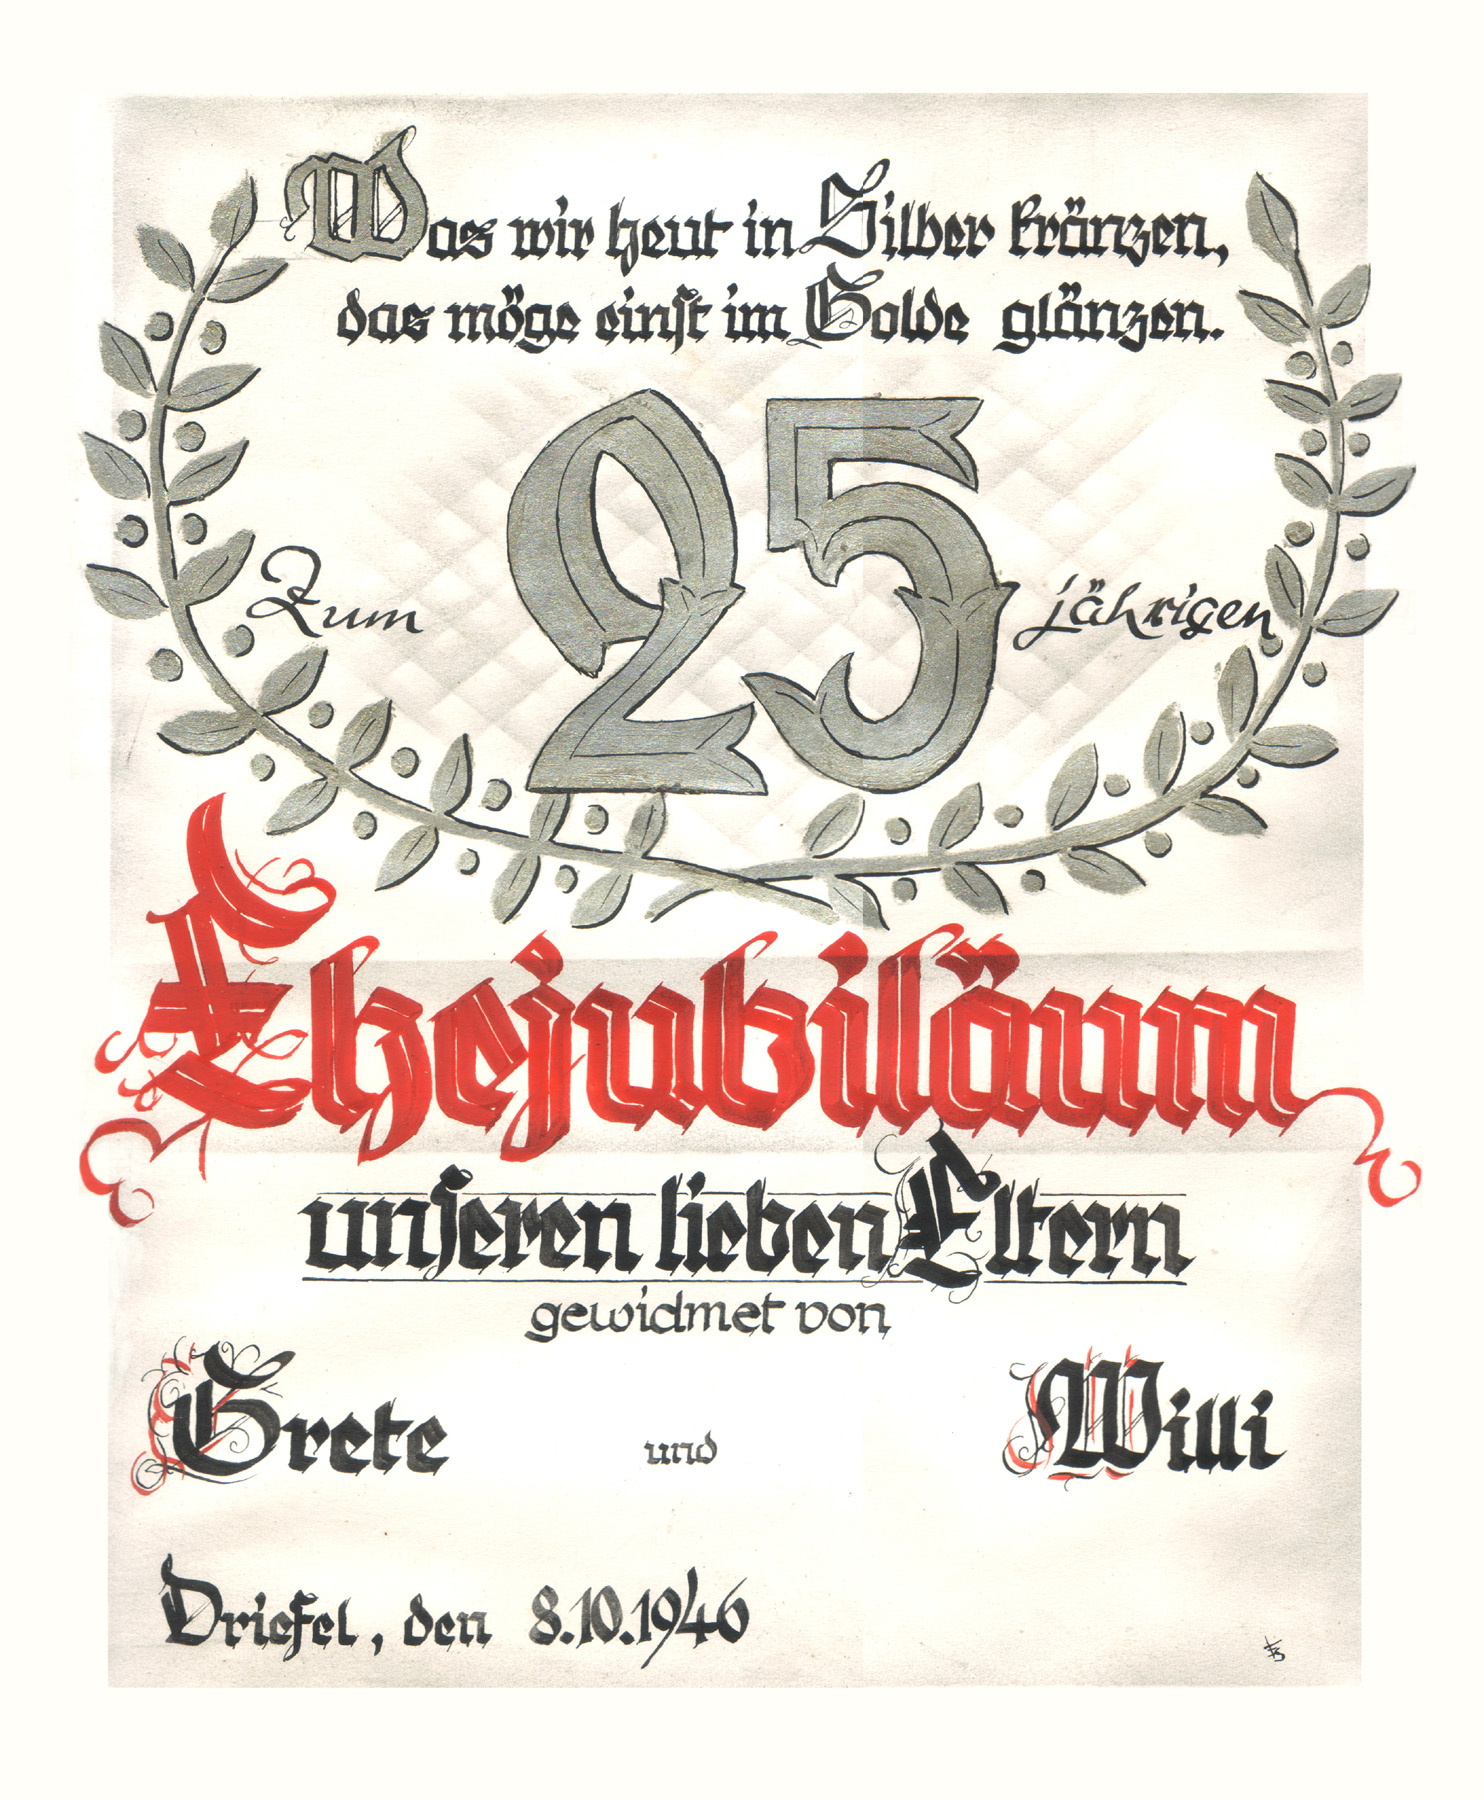 Was wir heut in Silber kränzen,
das möge einst im Golde glänzen.
Zum 25 jährigen
Ehejubiläum
unseren lieben Eltern
gewidmet von
Grete und Willi
Driefel, den 8.10.1946